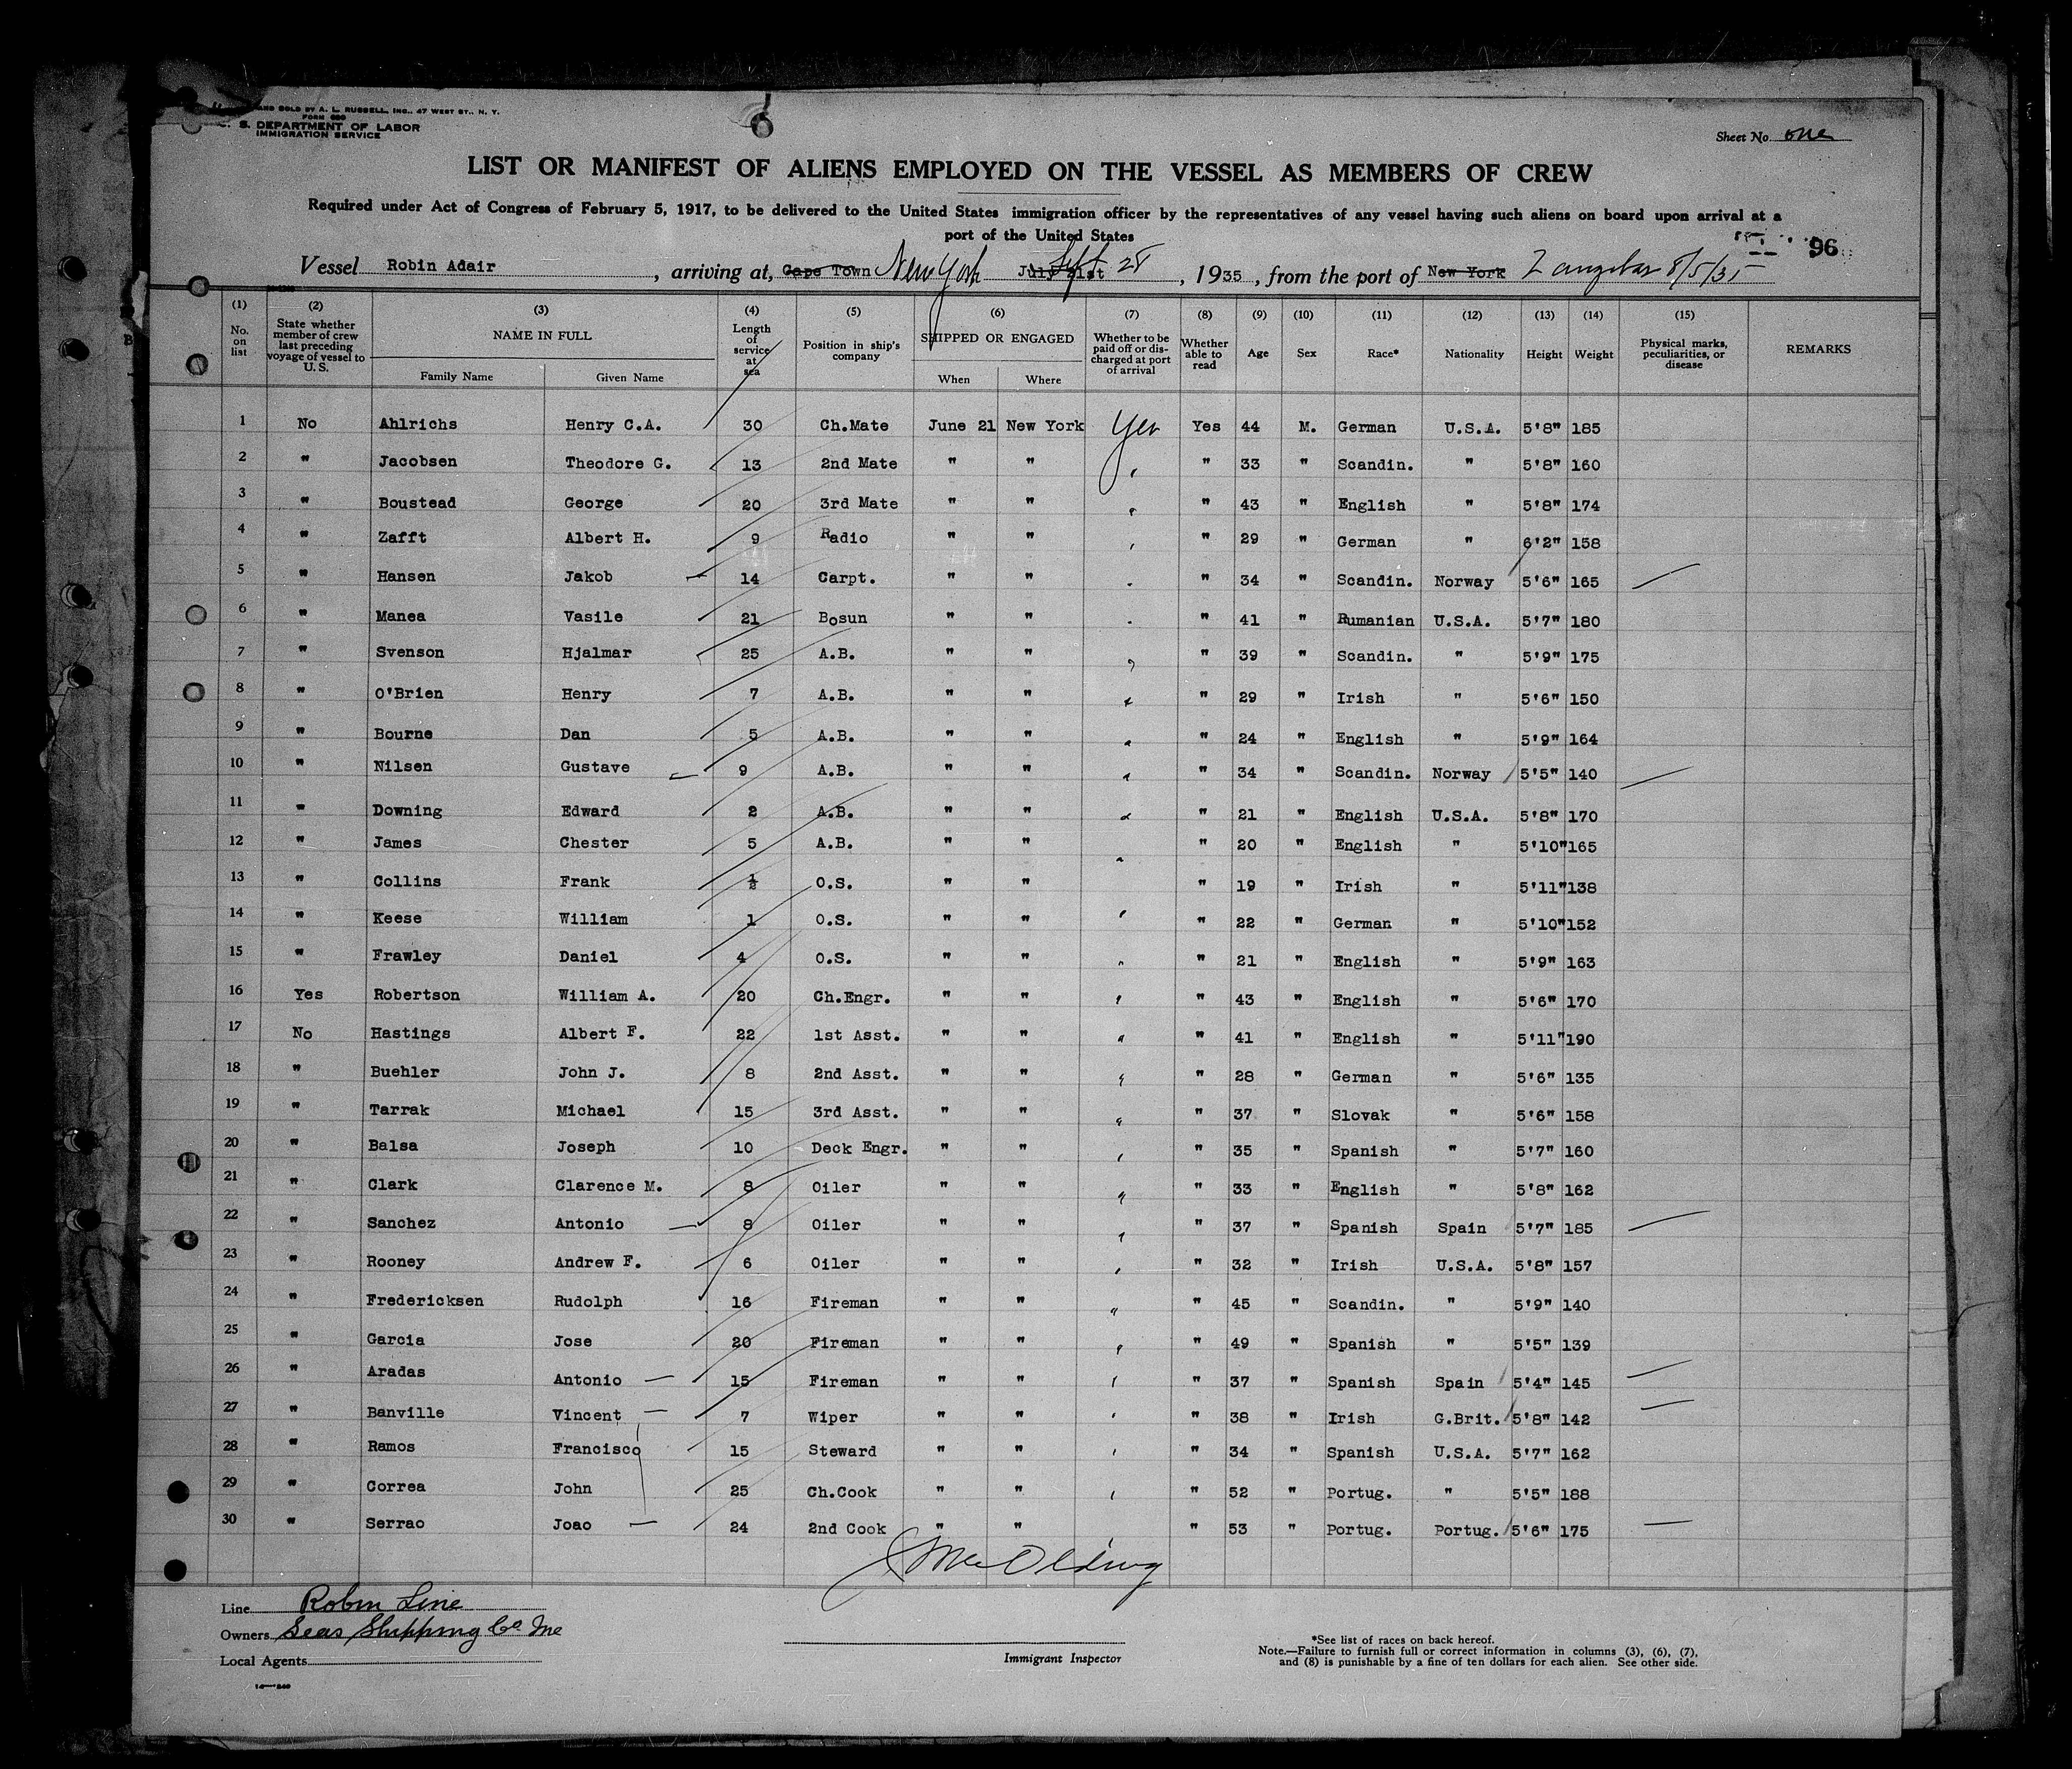 AND SOLD BY A. L. RUSSELL, INC., 47 WEST ST., N. Y.
FORM 680
S. DEPARTMENT OF LABOR
IMMIGRATION SERVICE
Sheet No. one
LIST OR MANIFEST OF ALIENS EMPLOYED ON THE VESSEL AS MEMBERS OF CREW
Required under Act of Congress of February 5, 1917, to be delivered to the United States immigration officer by the representatives of any vessel having such aliens on board upon arrival at a
port of the United States
96
Vessel Robin Adair, arriving at, Cape Town New York July 21st Sept 28, 1935, from the port of New York Zanzibar 8/5/35
(1) (2) (3) (4) (5) (6) (7) (8) (9) (10) (11) (12) (13) (14) (15)
No. on list State whether member of crew last preceding voyage of vessel to U. S. NAME IN FULL Length of service at sea Position in ship's company SHIPPED OR ENGAGED Whether to be paid off or discharged at port of arrival Whether able to read Age Sex Race* Nationality Height Weight Physical marks, peculiarities, or disease REMARKS
Family Name Given Name When Where
1 No Ahlrichs Henry C.A. 30 Ch.Mate June 21 New York Yes Yes 44 M. German U.S.A. 5'8" 185
2 " Jacobsen Theodore G. 13 2nd Mate " " " 33 " Scandin. " 5'8" 160
3 " Boustead George 20 3rd Mate " " " 43 " English " 5'8" 174
4 " Zafft Albert H. 9 Radio " " " 29 " German " 6'2" 158
5 " Hansen Jakob 14 Carpt. " " " 34 " Scandin. Norway 5'6" 165
6 " Manea Vasile 21 Bosun " " " 41 " Rumanian U.S.A. 5'7" 180
7 " Svenson Hjalmar 25 A.B. " " " 39 " Scandin. " 5'9" 175
8 " O'Brien Henry 7 A.B. " " " 29 " Irish " 5'6" 150
9 " Bourne Dan 5 A.B. " " " 24 " English " 5'9" 164
10 " Nilsen Gustave 9 A.B. " " " 34 " Scandin. Norway 5'5" 140
11 " Downing Edward 2 A.B. " " " 21 " English U.S.A. 5'8" 170
12 " James Chester 5 A.B. " " " 20 " English " 5'10" 165
13 " Collins Frank ½ O.S. " " " 19 " Irish " 5'11" 138
14 " Keese William 1 O.S. " " " 22 " German " 5'10" 152
15 " Frawley Daniel 4 O.S. " " " 21 " English " 5'9" 163
16 Yes Robertson William A. 20 Ch.Engr. " " " 43 " English " 5'6" 170
17 No Hastings Albert F. 22 1st Asst. " " " 41 " English " 5'11" 190
18 " Buehler John J. 8 2nd Asst. " " " 28 " German " 5'6" 135
19 " Tarrak Michael 15 3rd Asst. " " " 37 " Slovak " 5'6" 158
20 " Balsa Joseph 10 Deck Engr. " " " 35 " Spanish " 5'7" 160
21 " Clark Clarence M. 8 Oiler " " " 33 " English " 5'8" 162
22 " Sanchez Antonio 8 Oiler " " " 37 " Spanish Spain 5'7" 185
23 " Rooney Andrew F. 6 Oiler " " " 32 " Irish U.S.A. 5'8" 157
24 " Fredericksen Rudolph 16 Fireman " " " 45 " Scandin. " 5'9" 140
25 " Garcia Jose 20 Fireman " " " 49 " Spanish " 5'5" 139
26 " Aradas Antonio 15 Fireman " " " 37 " Spanish Spain 5'4" 145
27 " Banville Vincent 7 Wiper " " " 38 " Irish G.Brit. 5'8" 142
28 " Ramos Francisco 15 Steward " " " 34 " Spanish U.S.A. 5'7" 162
29 " Correa John 25 Ch.Cook " " " 52 " Portug. " 5'5" 188
30 " Serrao Joao 24 2nd Cook " " " 53 " Portug. Portug. 5'6" 175
Line Robin Line
Owners Seas Shipping Co. Inc
Local Agents
Immigrant Inspector
*See list of races on back hereof.
Note.—Failure to furnish full or correct information in columns (3), (6), (7),
and (8) is punishable by a fine of ten dollars for each alien. See other side.